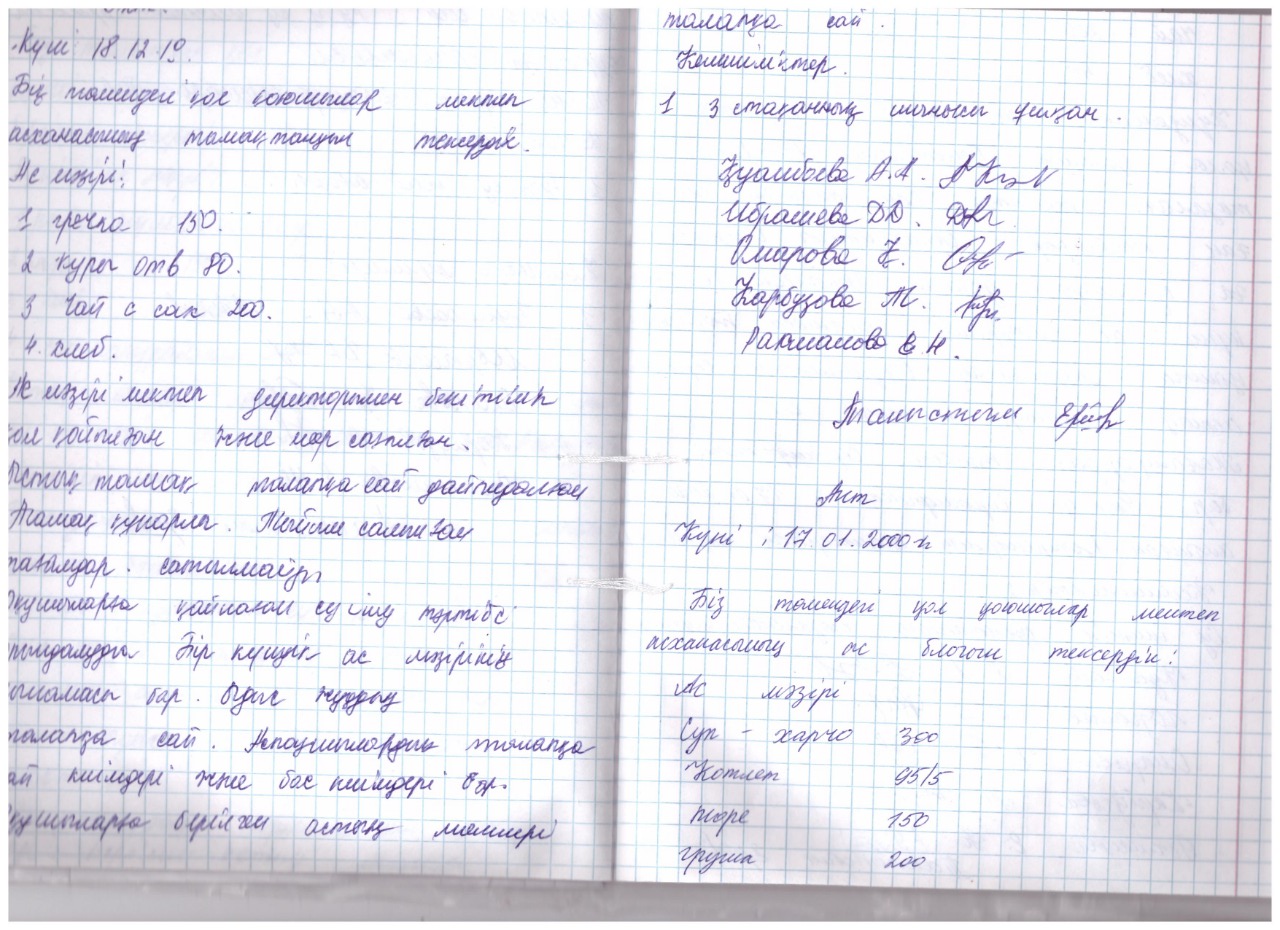 Акт.
Күні 18.12.19.
Біз төмендегі қол қоюшылар мектеп
асханасының тамақтануын тексердік.
Ас мәзірі:
1 гречка 150.
2 куры отв 80.
3 Чай с сах 200.
4. хлеб.
Ас мәзірі мектеп директорымен бекітіліп
қол қойылған және мөр салынған.
Ыстық тамақ талапқа сай дайындалған
Тамақ құнарлы. Тыйым салынған
тағамдар. сатылмайды
Оқушыларға қайнаған су ішу тәртібі
ұйымдасуда Бір күндік ас мәзірінің
сынамасы бар. Ыдыс жууды
талапқа сай. Аспазшылардың талапқа
сай киімдері және бас киімдері бар.
Оқушыларға берілген астың мөлшері
талапқа сай.
Кемшіліктер.
1 3 стақанның шынысы ұшқан.
Қуашбаева А.А.
Ибрашева Д.Д.
Омарова К.
Карбузова Т.
Рахманова Е Н.
Таныстым
Акт
Күні : 17 01. 2000 ж
Біз төмендегі қол қоюшылар мектеп
асханасының ас блогын тексердік:
Ас мәзірі
Суп - харчо 300
Котлет 95/5
пюре 150
груша 200